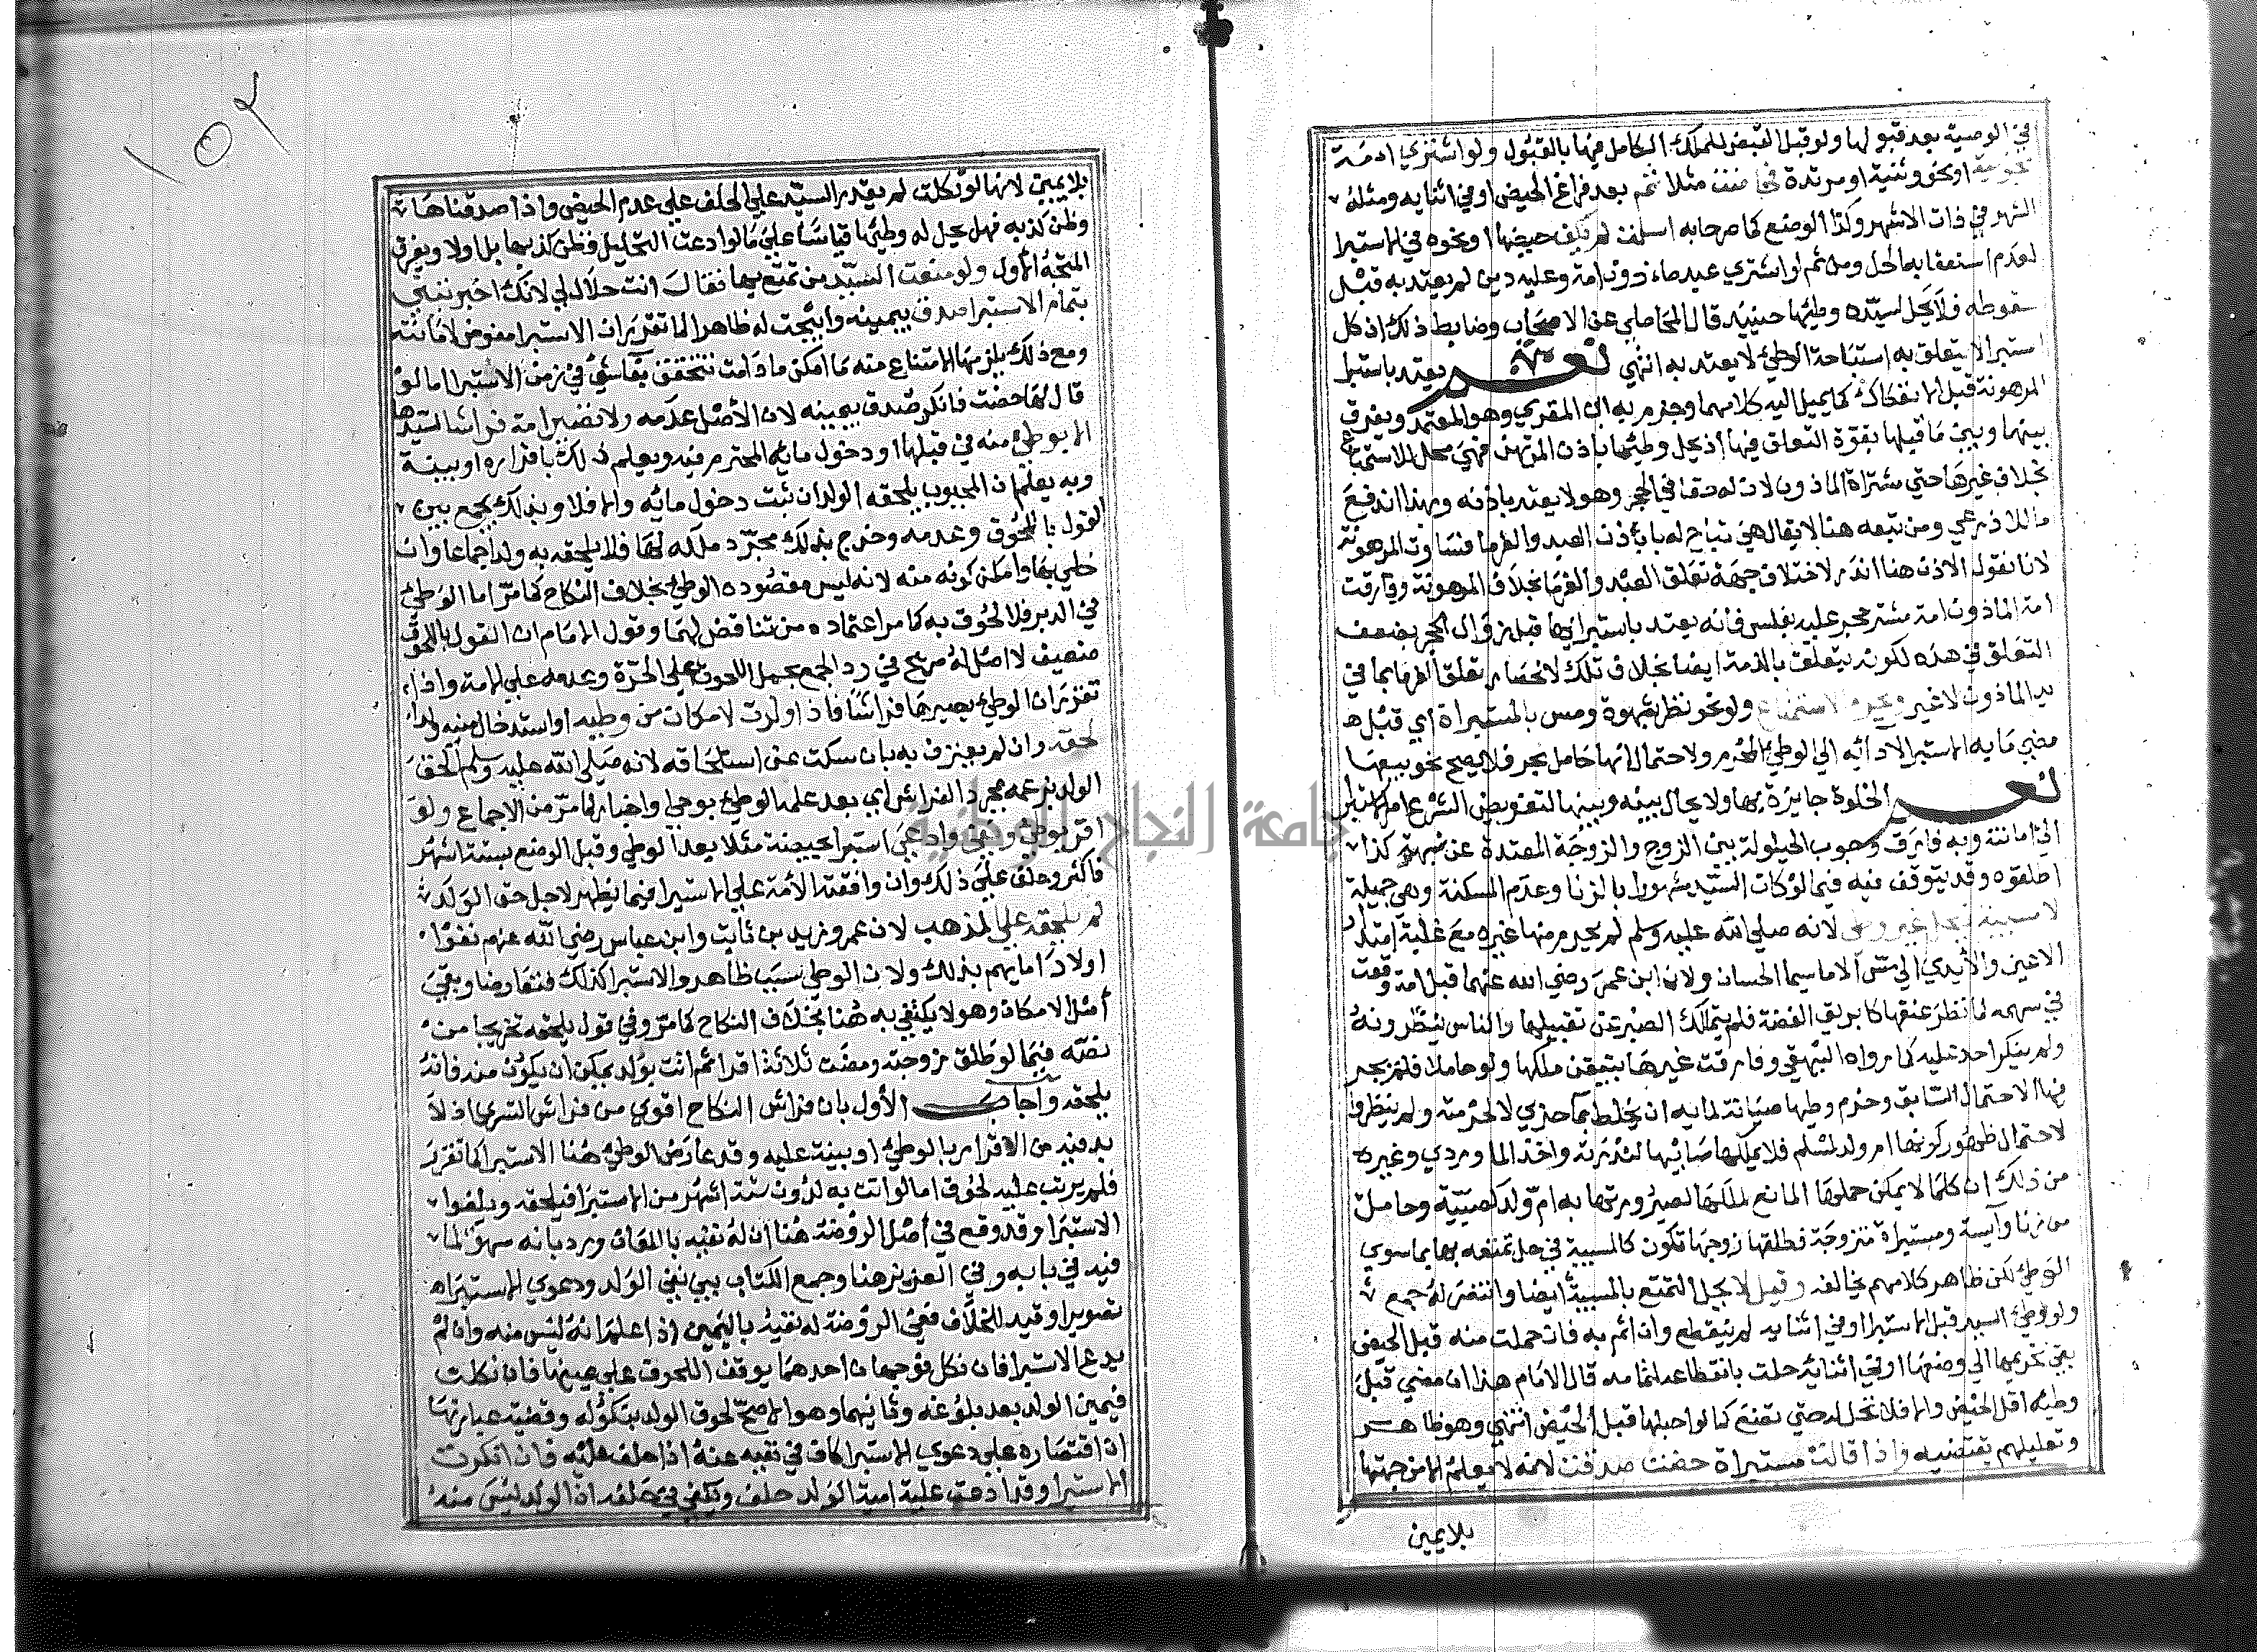 في الوصية بعد قبولها ولو قبل القبض للملك الكامل فيها بالقبول ولو اشتري امة
مجوسية او نحو وثنية او مرتدة فحاضت مثلا ثم بعد فراغ الحيض او في اثنايه ومثله
الشهر في ذات الاشهر وكذا الوضع كما صرحا به اسلمت لم يكف حيضها او نحوه في الاستبرا
لعدم استعقابه الحل ومن ثم لو اشتري عبد ماذون امة وعليه دين لم يعتد به قبل
سقوطه فلا يحل لسيده وطيها حينيد قال المحاملي عن الاصحاب وضابط ذلك ان كل
استبرا لا يتعلق به استباحة الوطئ لا يعتد به انتهي نعم يعتد باستبرا
المرهونة قبل الانفكاك كما يميل اليه كلامهما وجزم به ابن المقري وهو المعتمد ويفرق
بينها وبين ما قبلها بقوة التعلق فيها اذ يحل وطيها باذن المرتهن فهي محل الاستمتاع
بخلاف غيرها حتي مشتراة الماذون لان له حقا في الحجر وهو لا يعتد باذنه وبهذا اندفع
ما للاذرعي ومن تبعه هنا لا يقال هي تباح له باذن العبد والغرما فساوت المرهونة
لانا نقول الاذن هنا اندر لاختلاف جهة تعلق العبد والغرما بخلاف المرهونة وفارقت
امة الماذون امة مشتر حجر عليه بفلس فانه يعتد باستبرائها قبل زوال الحجر بضعف
التعلق في هذه لكونه يتعلق بالذمة ايضا بخلاف تلك لانحصار تعلق الغرما بما في
يد الماذون لا غير ويحرم الاستمتاع ولو بنحو نظر بشهوة ومس بالمستبراة اي قبل
مضي ما به الاستبرا لادائه الي الوطئ المحرم ولاحتمال انها حامل بحر فلا يصح نحو بيعها
نعم الخلوة جايزة بها ولا يحال بينه وبينها لتفويض الشرع امر الاستبرا
الي امانته وبه فارق وجوب الحيلولة بين الزوج والزوجة المعتدة عن شبهة كذا
اطلقوه وقد يتوقف فيه فيما لو كان السيد مشهورا بالزنا وعدم المسكنة وهي جميلة
لا مسبية فيحل غير وطئ لانه صلي الله عليه وسلم لم يحرم منها غيره مع غلبة امتداد
الاعين والايدي الي مس الاما سيما الحسان ولان ابن عمر رضي الله عنهما قبل امة وقعت
في سهمه لما نظر عنقها كابريق الفضة فلم يتمالك الصبر عن تقبيلها والناس ينظرونه
ولم ينكر احد عليه كما رواه البيهقي وفارقت غيرها بتيقن ملكها ولو حاملا فلم يجر
فيها الاحتمال السابق وحرم وطيها صيانة لمايه ان يختلط بما حربي لا لحرمته ولم ينظر
لاحتمال ظهور كونها ام ولد لمسلم فلا يملكها سابيها لندرته واخذ الماوردي وغيره
من ذلك ان كلما لا يمكن حملها المانع لملكها لصيرورتها به ام ولد كصبية وحامل
من زنا وآيسة ومستبراة مزوجة فطلقها زوجها تكون كالمسبية في حل تمتعه بها بما سوي
الوطئ لكن ظاهر كلامهم يخالفه وقيل لا يحل التمتع بالمسبية ايضا وانتصر له جمع
ولو وطئ السيد قبل الاستبرا او في اثنايه لم ينقطع وان اثم به فان حملت منه قبل الحيض
بقي تحريمها الي وضعها او في اثنايه حلت بانقطاعه لتمامه قال الامام هذا ان مضي قبل
وطيه اقل الحيض والا فلا تحل له حتي تضع كما لو احبلها قبل الحيض انتهي وهو ظاهر
وتعليلهم يقتضيه واذا قالت مستبراة حضت صدقت لانه لا يعلم الا من جهتها
بلا يمين
١٥٢
بلا يمين لانها لو نكلت لم يقدر السيد علي الحلف علي عدم الحيض واذا صدقناها
وظن كذبه فهل يحل له وطيها قياسا علي ما لو ادعت التحليل فظن كذبها بل اولا ويفرق
المتجه الاول ولو منعت السيد من تمتع بها فقال انت حلال لي لانك اخبرتني
بتمام الاستبرا صدق بيمينه وابيحت له ظاهرا لما تقرر ان الاستبرا مفوض لامانته
ومع ذلك يلزمها الامتناع منه ما امكن ما دامت تتحقق بقا شئ في زمن الاستبرا اما لو
قال لها حضت فانكر صدق بيمينه لان الاصل عدمه ولا تصير امة فراشا لسيدها
الا بوطئ منه في قبلها او دخول مايه المحترم فيه ويعلم ذلك باقراره او ببينة
وبه يعلم ان المجبوب يلحقه الولد ان ثبت دخول مائه والا فلا وبذلك يجمع بين
القول باللحوق وعدمه وخرج بذلك مجرد ملكه لها فلا يلحقه به ولد اجماعا وان
خلي بها وامكن كونه منه لانه ليس مقصوده الوطئ بخلاف النكاح كما مر اما الوطئ
في الدبر فلا لحوق به كما مر اعتماده من تناقض لهما وقول الامام ان القول باللحوق
ضعيف لا اصل له صريح في رد الجمع بحمل اللحوق علي الحرة وعدمه علي الامة واذا
تقرر ان الوطئ يصيرها فراشا فاذا ولدت لامكان من وطيه او استدخال منيه ولدا
لحقه وان لم يعترف به بان سكت عن استلحاقه لانه صلي الله عليه وسلم الحق
الولد بزمعة بمجرد الفراش اي بعد علمه الوطئ بوحي او اخبار لما مر من الاجماع ولو
اقر بوطئ ونفي وادعي استبرا بحيضة مثلا بعد الوطئ وقبل الوضع بستة اشهر
فاكثر وحلف علي ذلك وان وافقته الامة علي الاستبرا فيما يظهر لاجل حق الولد
لم يلحقه علي المذهب لان عمر وزيد بن ثابت وابن عباس رضي الله عنهم نفوا
اولاد امايهم بذلك ولان الوطئ سبب ظاهر والاستبرا كذلك فتعارضا وبقي
أصل الامكان وهو لا يكتفي به هنا بخلاف النكاح كما مر وفي قول يلحقه تخريجا من
نصه فيما لو طلق زوجته ومضت ثلاثة اقرا ثم اتت بولد يمكن ان يكون منه فانه
يلحقه واجاب الأول بان فراش النكاح اقوي من فراش التسري اذ لا
بد فيه من الاقرار بالوطئ او بينة عليه وقد عارض الوطئ هنا الاستبرا كما تقرر
فلم يرتب عليه لحوق اما لو اتت به لدون ستة اشهر من الاستبرا فيلحقه ويلغوا
الاستبرا وقد وقع في أصل الروضة هنا ان له نفيه باللعان ورد بانه سهو لما
فيه في بابه وفي العزيز هنا وجمع الكتاب بين نفي الولد ودعوي الاستبرا
تصويرا وقيد للخلاف ففي الروضة له نفيه باليمين اذا علم انه ليس منه وان لم
يدع الاستبرا فان نكل فوجهان احدهما يوقف اللحوق علي يمينها فان نكلت
فيمين الولد بعد بلوغه وثانيهما وهو الاصح لحوق الولد بنكوله وقضية عبارتها
ان اقتصاره علي دعوي الاستبرا كاف في نفيه عنه اذا حلف عليه فان انكرت
الاستبرا وقد ادعت عليه امية الولد حلف ويكفي في حلفه ان الولد ليس منه
جامعة النجاح الوطنية